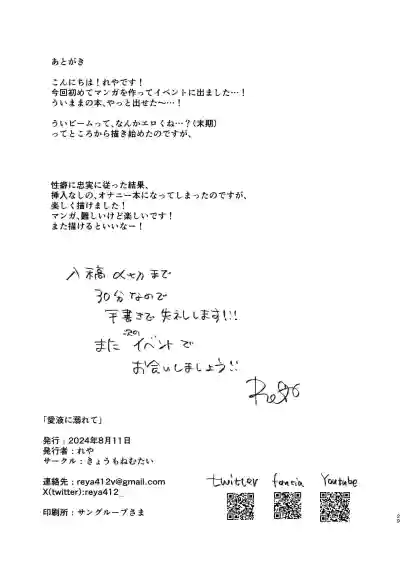 あとがき
こんにちは！れやです！
今回初めてマンガを作ってイベントに出ました…！
ういままの本、やっと出せた～…！
ういビームって、なんかエロくね…？(末期)
ってところから描き始めたのですが、
性癖に忠実に従った結果、
挿入なしの、オナニー本になってしまったのですが、
楽しく描けました！
マンガ、難しいけど楽しいです！
また描けるといいなー！
入稿〆切まで
30分なので
手書きで失礼します!!!
また次のイベントで
お会いしましょう!!
「愛液に溺れて」
発行：2024年8月11日
発行者：れや
サークル：きょうもねむたい
連絡先：reya412v@gmail.com
X(twitter):reya412_
印刷所：サングループさま
twitter fantia Youtube
29